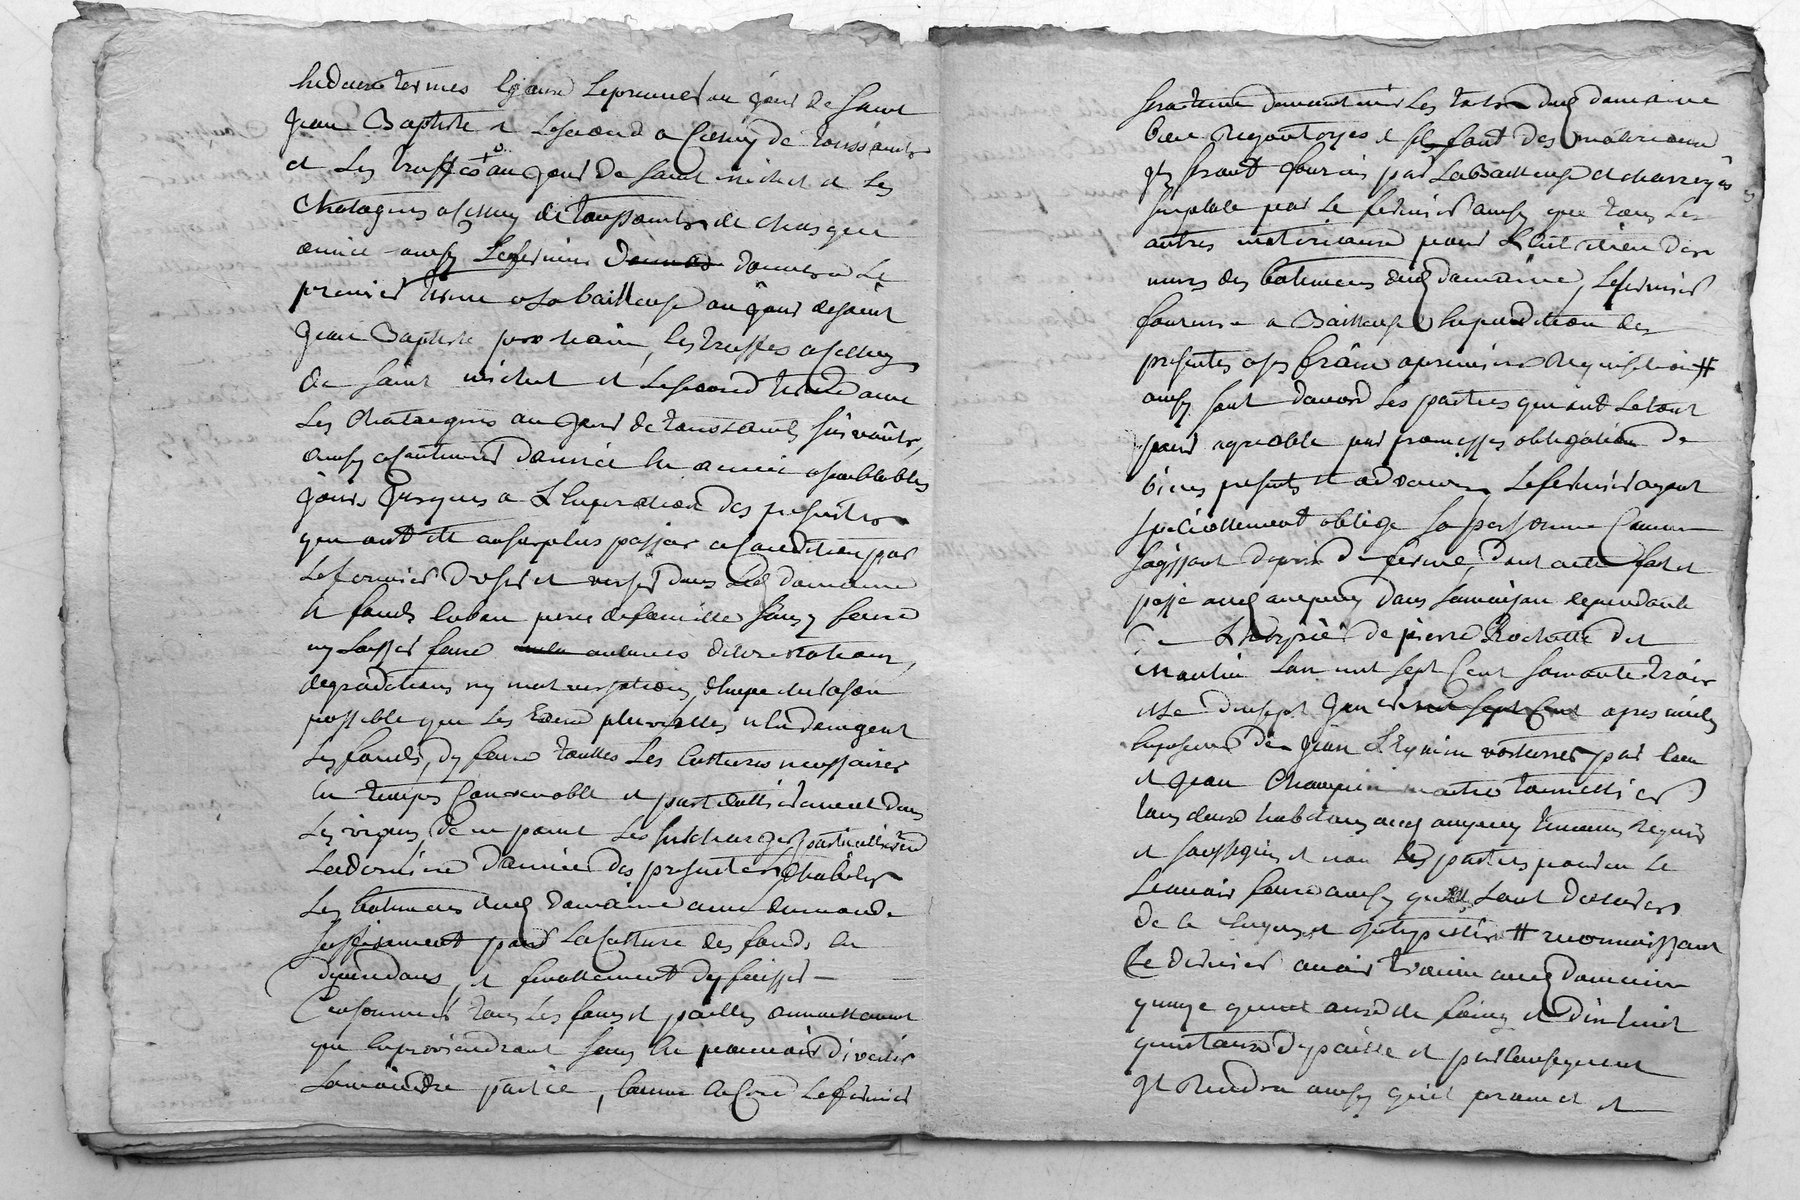 en deux termes egaux le premier au jour de saint
Jean Baptiste et le second a celluy de toussaints
et les truffes au jour de saint michel et les
chataignes a celluy de toussaints de chasque
année ainsy le fermier donnera le
premier terme a la bailleuse au jour de saint
Jean Baptiste prochain, les truffes a celluy
de saint michel et le second terme avec
les chataignes au jour de toussaints suivants,
ainsy a continuer d'année en année a semblables
jours jusques a l'expiration des presentes
qui ont été au surplus passées a condition par
le fermier d'user et verser dans led domaine
et fonds en bon pere de famille sans y faire
ny laisser faire aulcunes deteriorations,
degradations ny malversations, d'empecher
possible que les eaux pluvialles n'endomagent
les fonds, d'y faire touttes les cultures necessaires
en temps convenable et particullierement dans
les vignes, de ne point les surcharger particullierement
la derniere d'année des presentes, d'habiter
les batiments dud domaine avec du monde
suffisamment pour la culture des fonds en
dependans, et finallement d'y faire
consommer tous les foins et pailles annuellement
qui en proviendront sans en pouvoir divertir
la moindre partie, comme encore le fermier
sera tenu de maintenir les toits dud domaine
bien regouttoyes et s'il faut des materiaux
ils seront fournis par la Bailleuse et charroyés
sur place par le fermier ainsy que tous les
autres materiaux pour l'entretien des
murs des batiments dud domaine, le fermier
fournira a Bailleuse expedition des
presentes a ses frais a premiere requisition #
ainsy sont d'accord les parties qui ont le tout
pour agreable par promesses obligation de
biens presents et advenir le fermier ayant
speciallement obligé sa personne comme
s'agissant de prix de ferme, dont acte fait et
passé aud dans la maison dependante
de de pierre Rochette dit
Martin l'an mil sept cent soixante trois
et le dix sept Janvier apres midy
en presence de Jean voiturier par eau
et Jean Champin maitre tonnellier
tous deux habitans aud temoins requis
et soussignés et non les parties pour ne le
scavoir faire ainsy qu'elles l'ont declaré
de ce enquis et interpellées # reconnaissant
le dernier avoir trouvé aud domaine
quinze quintaux de foins et dix huit
quintaux de paille et par consequent
il rendra ainsy qu'il promet et